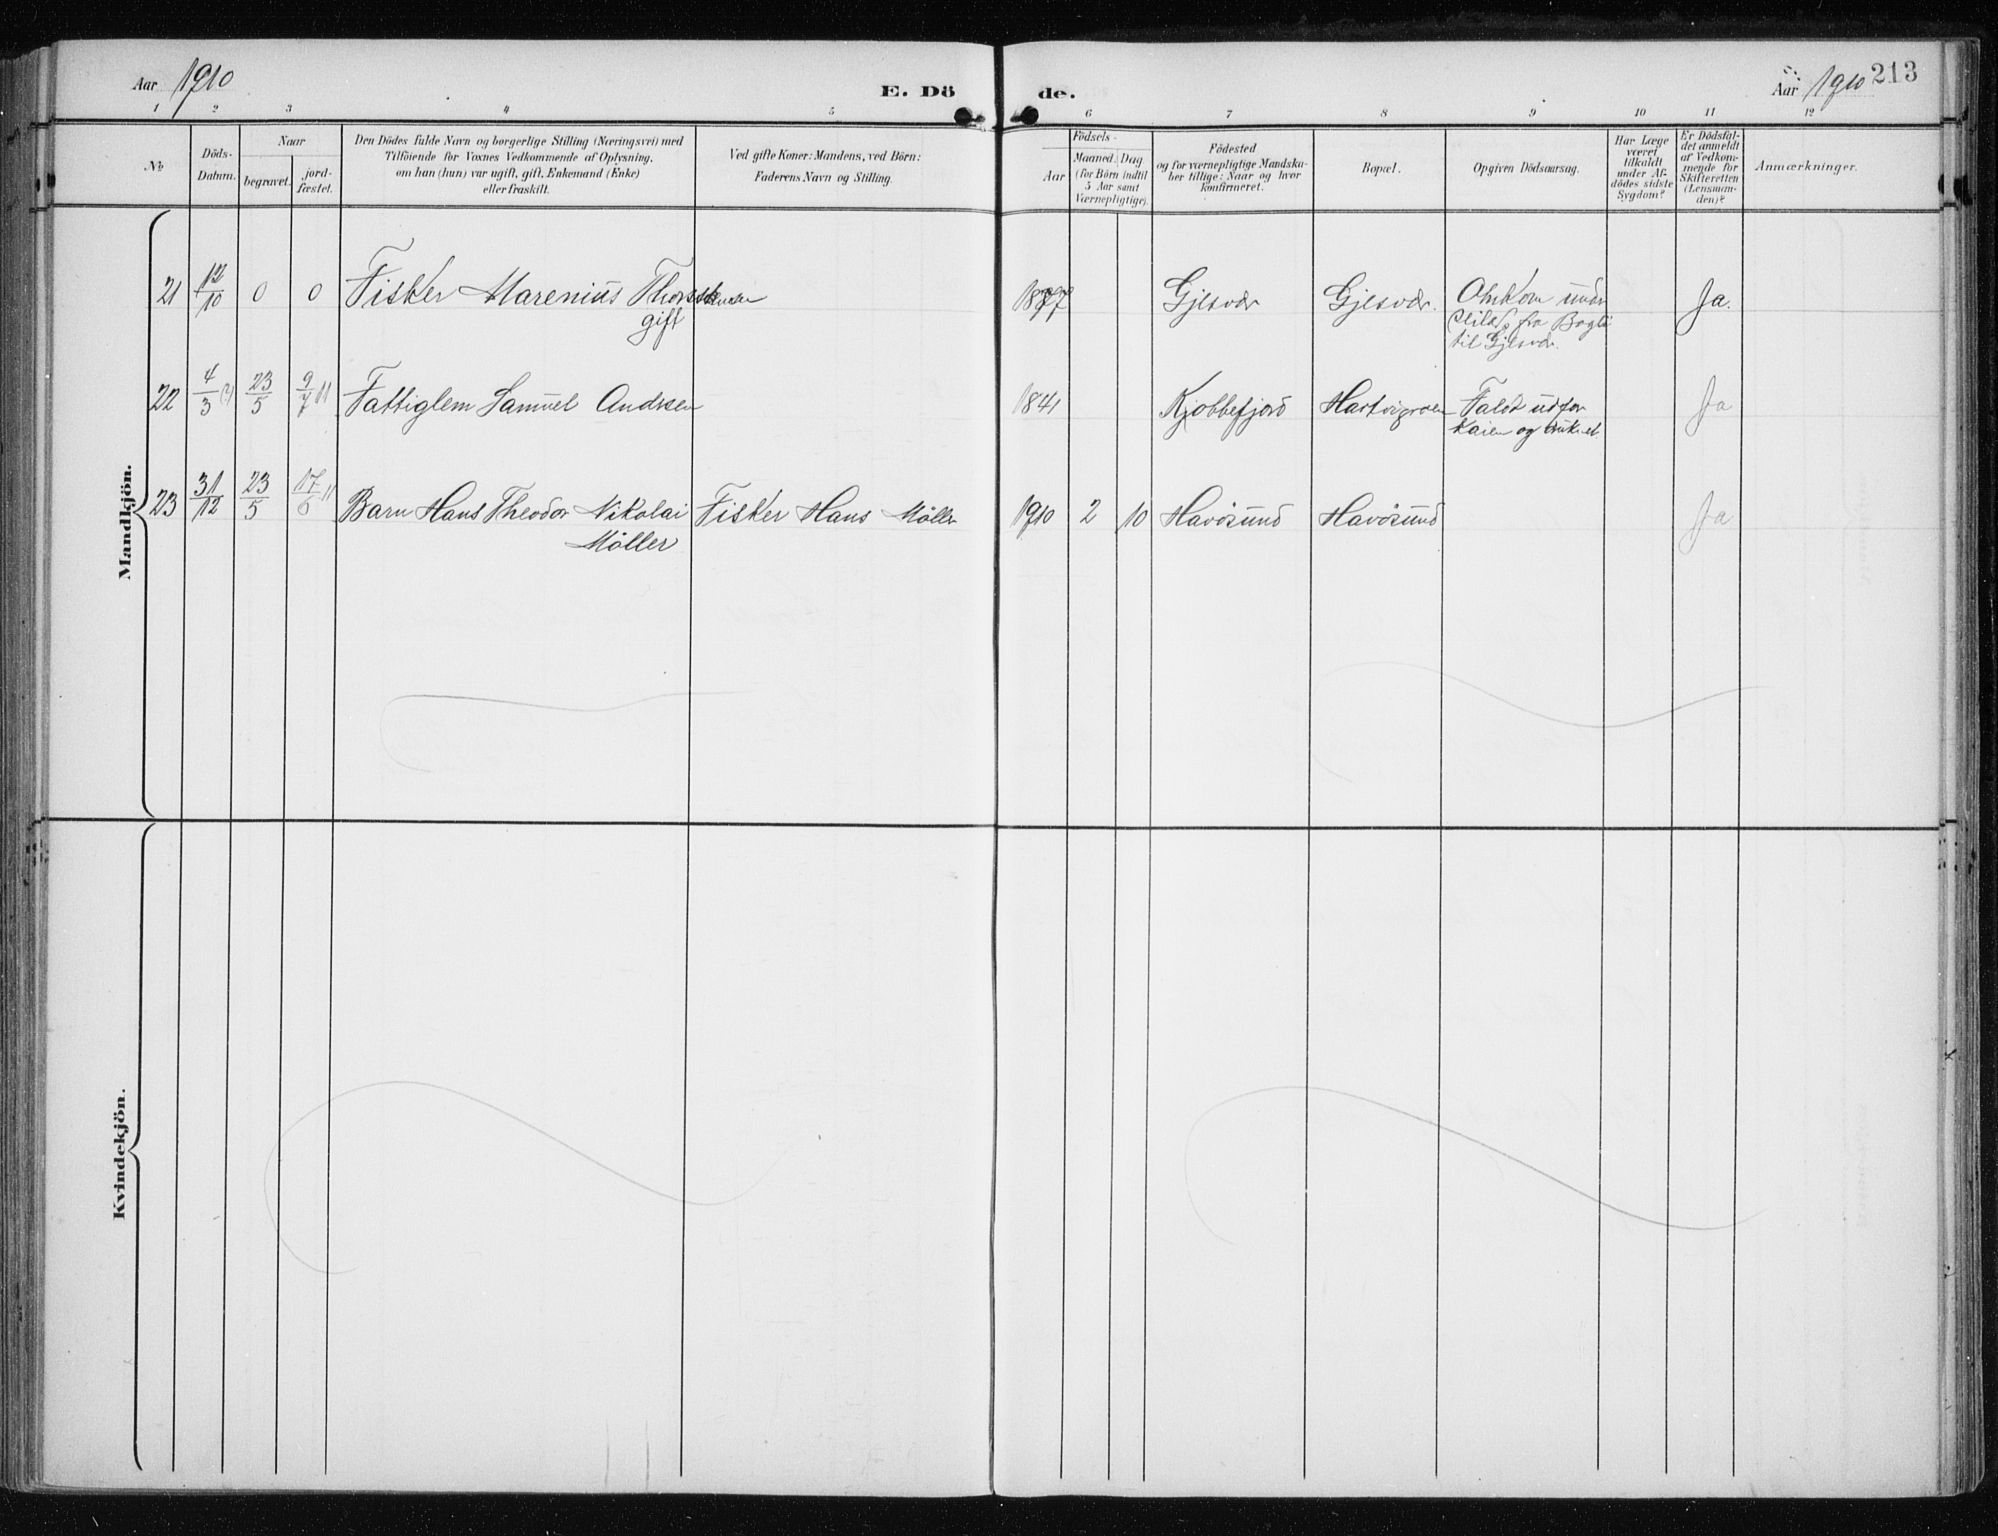 Aar 1910
E. Dö de.
Aar 1910 213
1 2 3 4 5 6 7 8 9 10 11 12
№
Döds-
Datum.
Naar
begravet.
jord-
fæstet.
Den Dödes fulde Navn og borgerlige Stilling (Næringsvei) med
Tilföiende for Voxnes Vedkommende af Oplysning,
om han (hun) var ugift, gift, Enkemand (Enke)
eller fraskilt.
Ved gifte Koner: Mandens, ved Börn:
Faderens Navn og Stilling.
Födsels-
Aar
Maaned. Dag
(for Börn indtil
5 Aar samt
Værnepligtige).
Födested
og for værnepligtige Mandska-
ber tillige: Naar og hvor
konfirmeret.
Bopæl.
Opgiven Dödsaarsag.
Har Læge
været
tilkaldt
under Af-
dödes sidste
Sygdom?
Er Dödsfal-
det anmeldt
af Vedkom-
mende for
Skifteretten
(Lensman-
den)?
Anmærkninger.
Mandkjön.
21 12/10 0 0 Fisker Marenius
gift
Gjesvær Gjesvær. Omkom
fra
til Gjesvær.
Ja.
22 4/3 (?) 23/5 9/7 11 Fattiglem Samuel Andrsen 1841 Kjøllefjord Faldt udfor
Kaien og
Ja
23 31/12 23/5 17/6 11 Barn Hans Theodor Nikolai Fisker Hans Møller 1910 2 10 Havösund Havösund Ja
Møller
Kvindekjön.